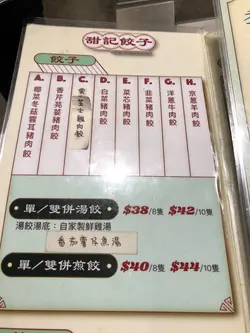 甜記餃子
餃子
A. 椰菜冬菇雲耳豬肉餃
B. 香芹芫荽豬肉餃
C. 芝士雞肉餃
D. 白菜豬肉餃
E. 菜芯豬肉餃
F. 韭菜豬肉餃
G. 洋蔥牛肉餃
H. 京蔥羊肉餃
單／雙併湯餃 $38/8隻 $42/10隻
湯餃湯底：自家製鮮雞湯
番茄薯仔魚湯
單／雙併煎餃 $40/8隻 $44/10隻